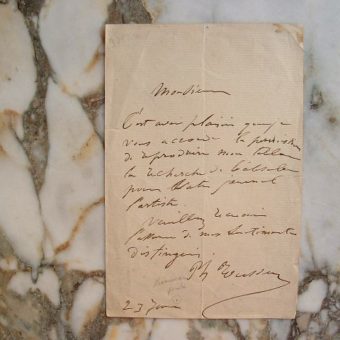 Monsieur
C'est avec plaisir que je
vous accorde la permission
de reproduire mon tableau
la recherche de
pour
l'artiste.
Veuillez recevoir
l'assurance de mes sentiments
distingués.
Ph Rousseau
23 Juin